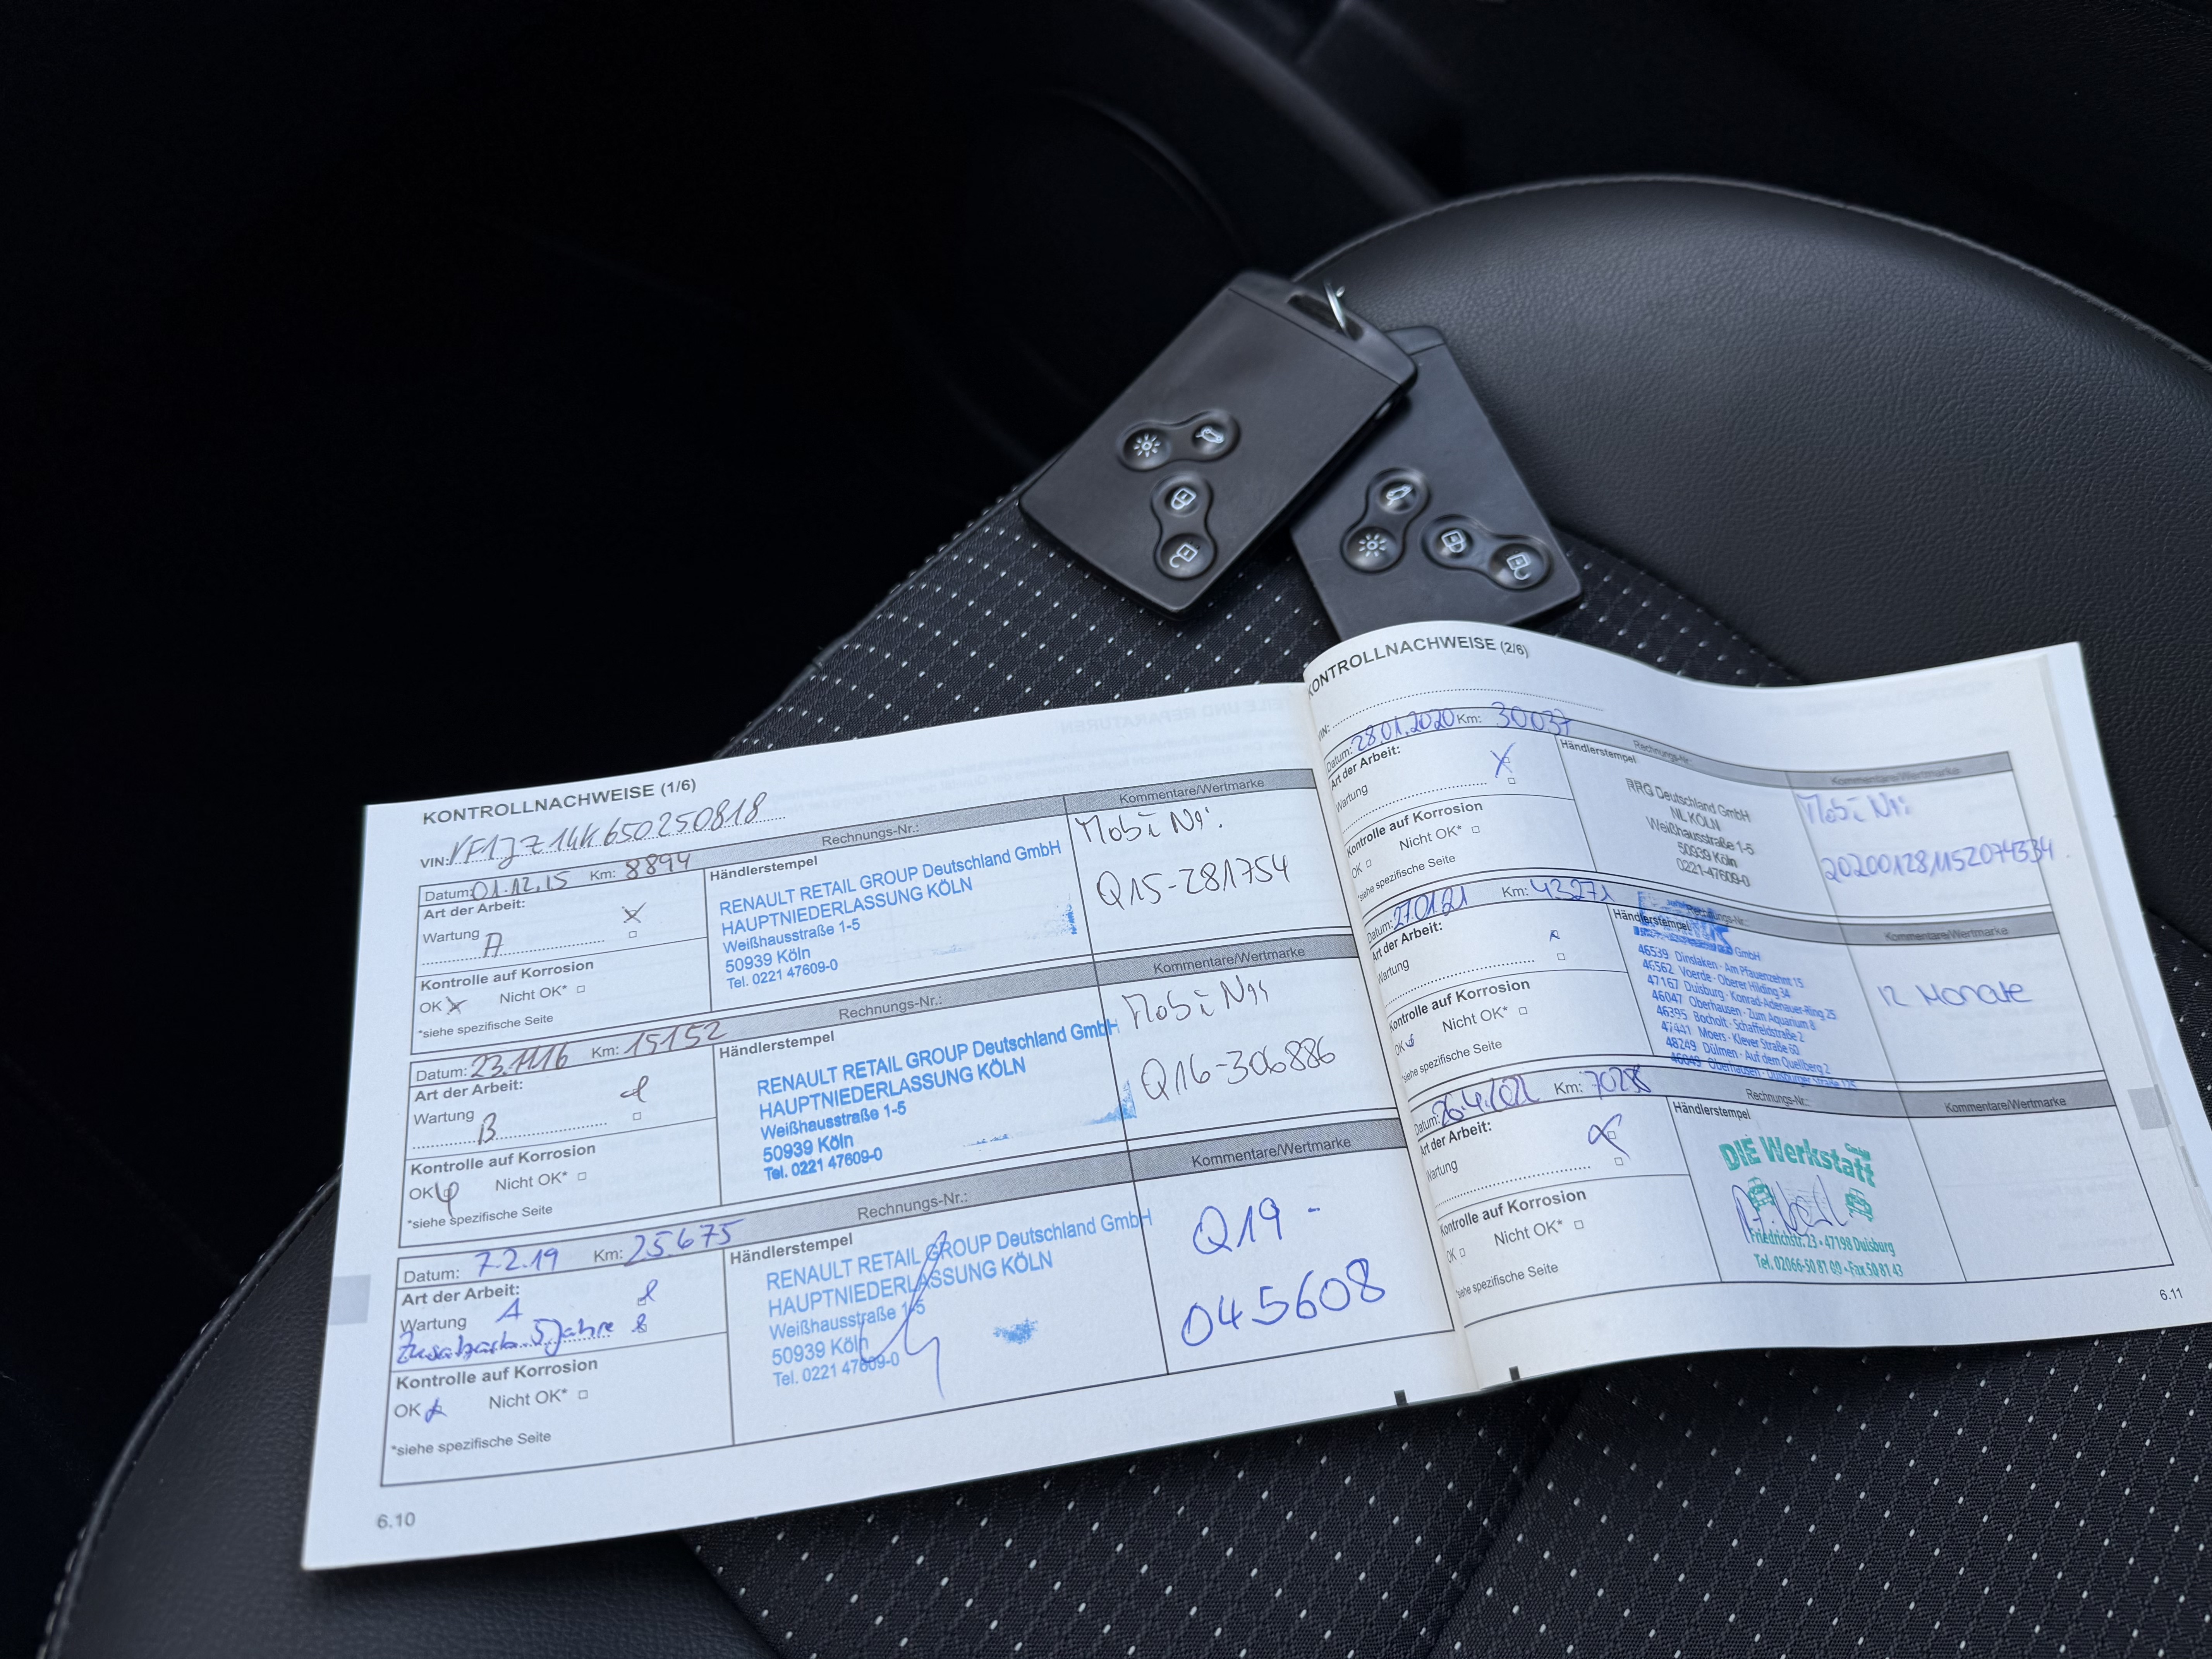 KONTROLLNACHWEISE (1/6)
VIN: VF1JZ14K650250818
Datum: 01.12.15 Km: 8894 Rechnungs-Nr.: Kommentare/Wertmarke
Art der Arbeit:
Wartung A
Kontrolle auf Korrosion
OK Nicht OK*
*siehe spezifische Seite
Händlerstempel
RENAULT RETAIL GROUP Deutschland GmbH
HAUPTNIEDERLASSUNG KÖLN
Weißhausstraße 1-5
50939 Köln
Tel. 0221 47609-0
Mobi Nr:
Q15-281754
Datum: 23.11.16 Km: 15152 Rechnungs-Nr.: Kommentare/Wertmarke
Art der Arbeit:
Wartung
B
Kontrolle auf Korrosion
OK Nicht OK*
*siehe spezifische Seite
Händlerstempel
RENAULT RETAIL GROUP Deutschland GmbH
HAUPTNIEDERLASSUNG KÖLN
Weißhausstraße 1-5
50939 Köln
Tel. 0221 47609-0
Mobi Nr:
Q16-306886
Datum: 7.2.19 Km: 25675 Rechnungs-Nr.: Kommentare/Wertmarke
Art der Arbeit:
Wartung A
5 Jahre
Kontrolle auf Korrosion
OK Nicht OK*
*siehe spezifische Seite
Händlerstempel
RENAULT RETAIL GROUP Deutschland GmbH
HAUPTNIEDERLASSUNG KÖLN
Weißhausstraße 1-5
50939 Köln
Tel. 0221 47609-0
Q19 -
045608
6.10
KONTROLLNACHWEISE (2/6)
VIN:
Datum: 28.01.2020 Km: 30037 Rechnungs-Nr.: Kommentare/Wertmarke
Art der Arbeit:
Wartung
Kontrolle auf Korrosion
OK Nicht OK*
*siehe spezifische Seite
Händlerstempel
RRG Deutschland GmbH
NL KÖLN
Weißhausstraße 1-5
50939 Köln
0221-47609-0
Mobi Nr:
Datum: 27.01.21 Km: 43271 Kommentare/Wertmarke
Art der Arbeit:
Wartung
Kontrolle auf Korrosion
OK Nicht OK*
*siehe spezifische Seite
Händlerstempel
GmbH
46539 Dinslaken · Am Pfauenzehnt 15
46562 Voerde · Oberer Hilding 34
47167 Duisburg · Konrad-Adenauer-Ring 25
46047 Oberhausen · Zum Aquarium 8
46395 Bocholt · Schaffeldstraße 2
47441 Moers · Klever Straße 60
48249 Dülmen · Auf dem Quellberg 2
46049 Oberhausen · Duisburger Straße
12 Monate
Datum: Km: Rechnungs-Nr.: Kommentare/Wertmarke
Art der Arbeit:
Wartung
Kontrolle auf Korrosion
OK Nicht OK*
*siehe spezifische Seite
Händlerstempel
DIE Werkstatt
Friedrichstr. 23 · 47198 Duisburg
Tel. 02066-50 81 09 · Fax 50 81 43
6.11